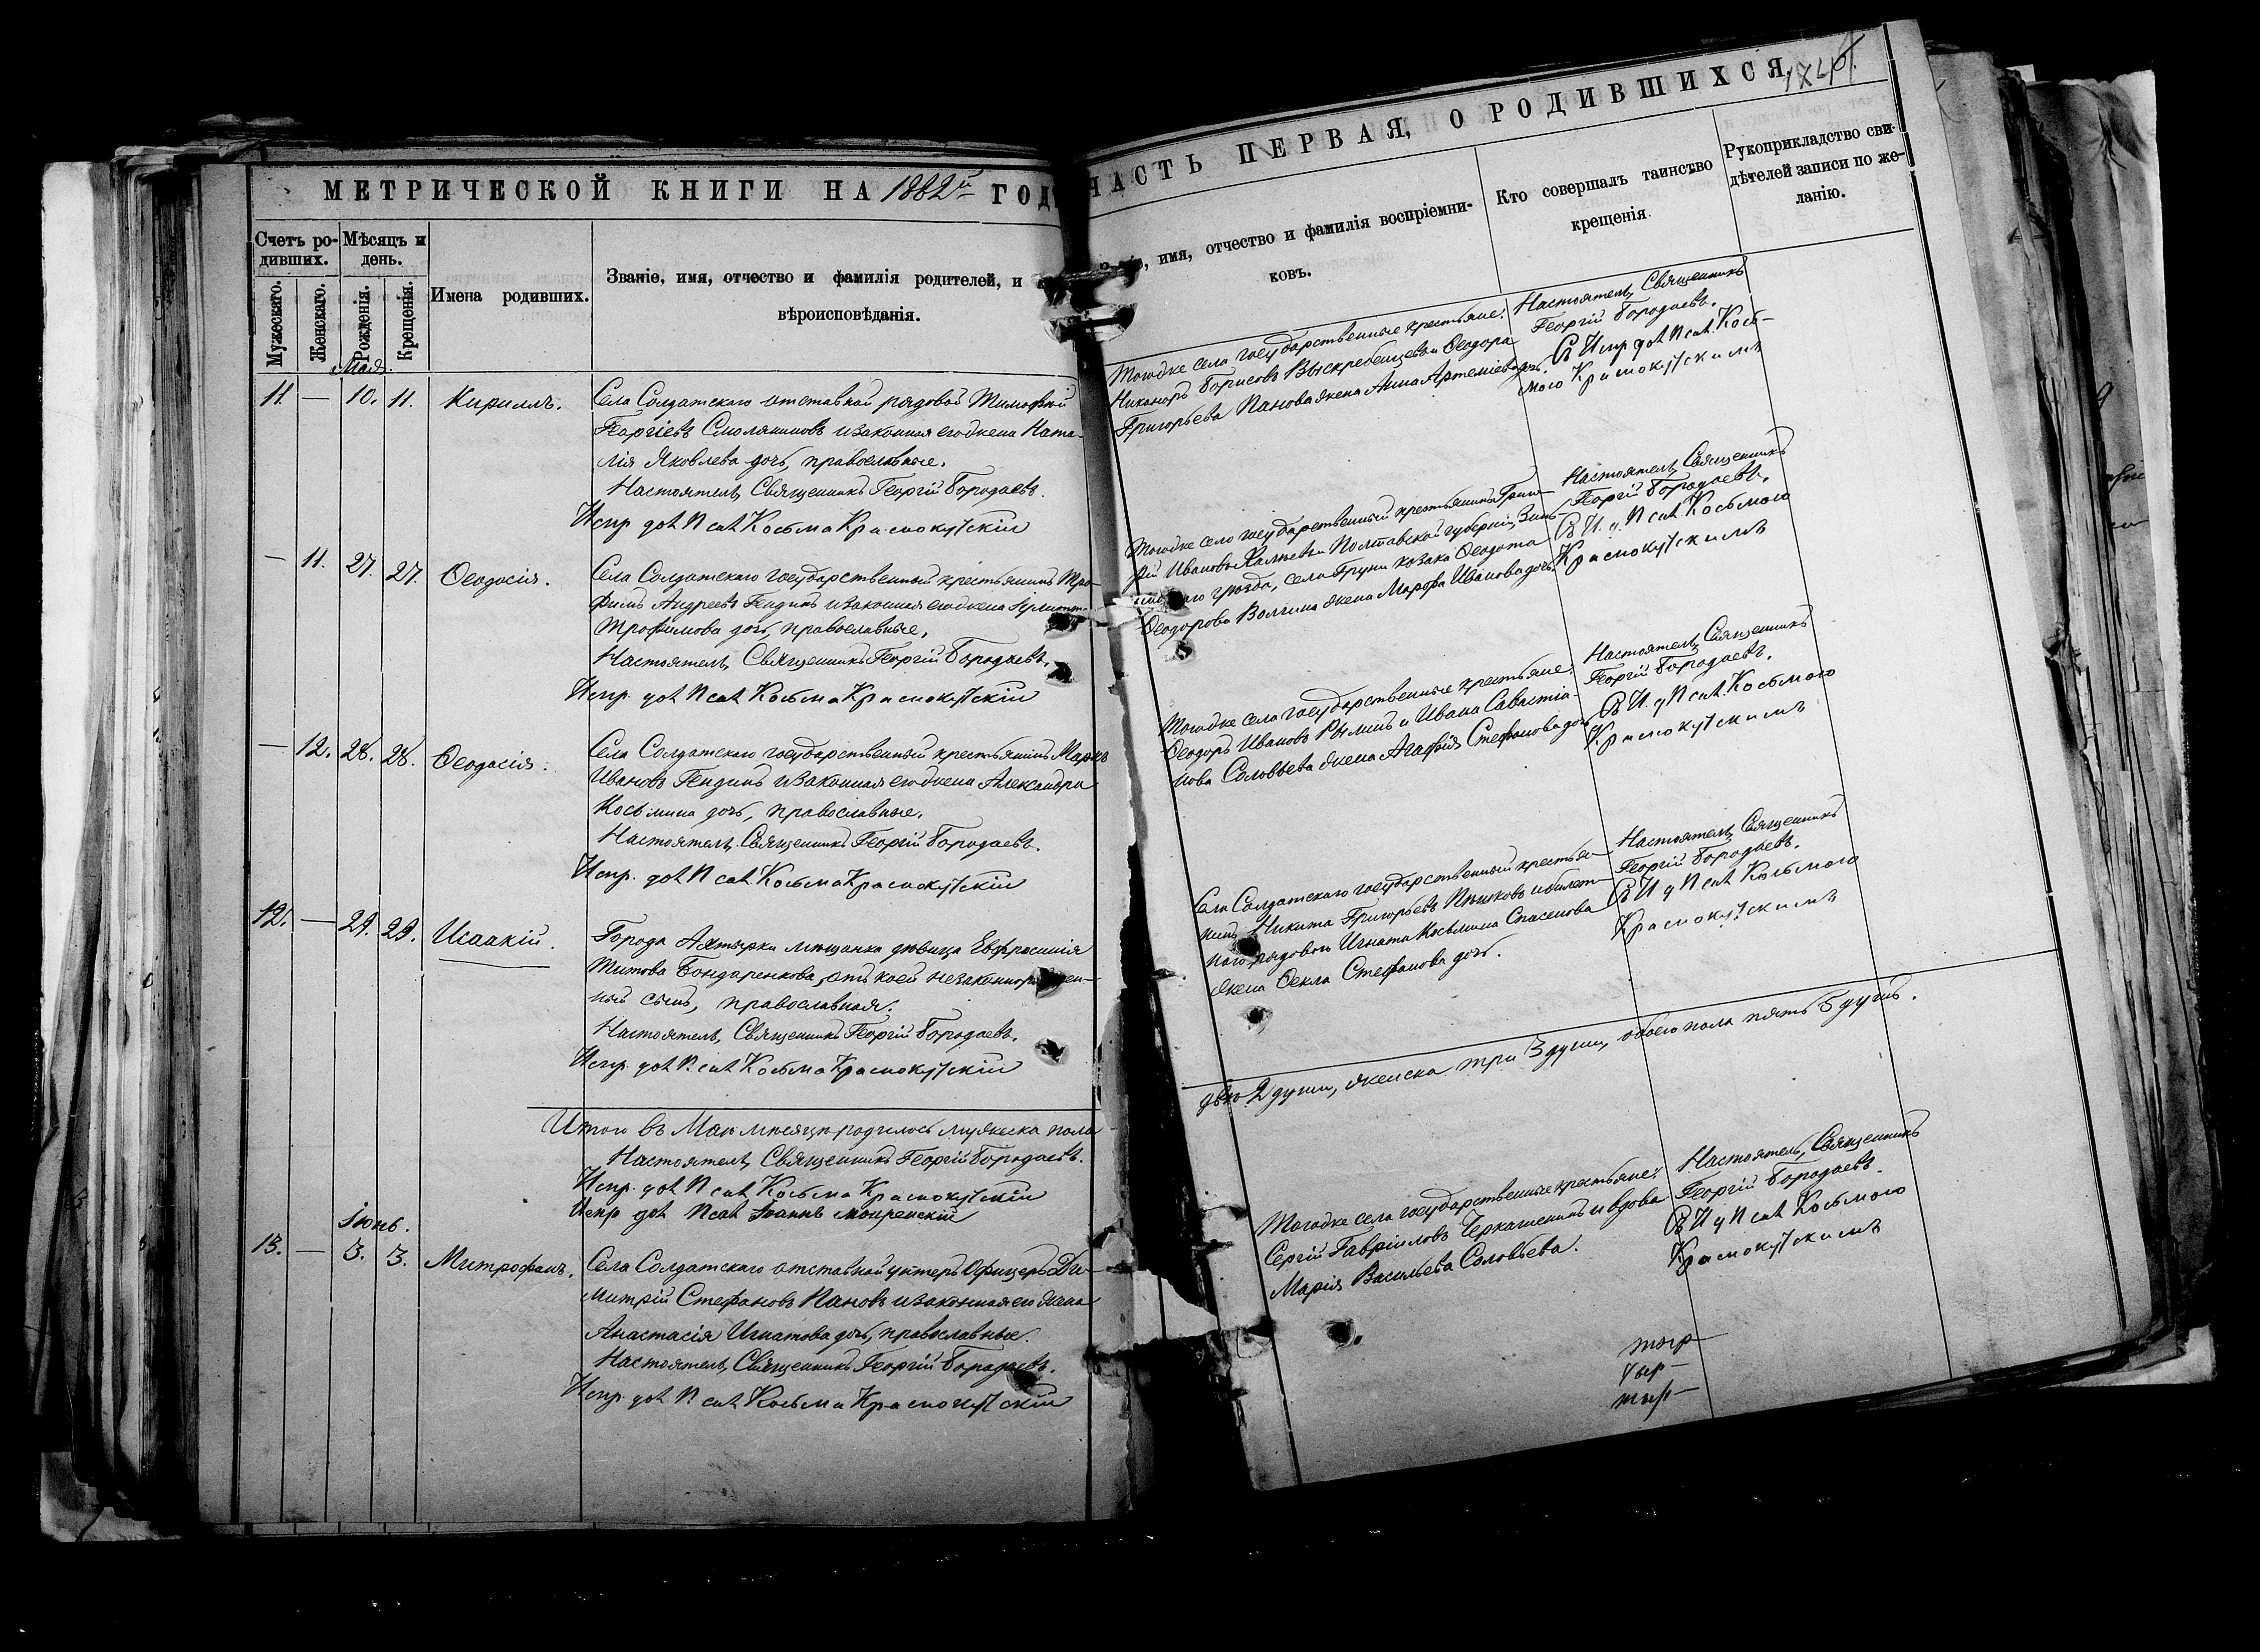 МЕТРИЧЕСКОЙ КНИГИ НА 1882й ГОДЪ
Счетъ ро-
дивших.
Мѣсяцъ и
день.
Мужескаго.
Женскаго.
Рожденія.
Крещенія.
Имена родивших.
Званіе, имя, отчество и фамилія родителей, и
вѣроисповѣданія.
Мая.
11. — 10. 11. Кириллъ.
Села Солдатскаго отставной рядовой Тимофей
Георгіевъ Смоляниновъ и законная его жена Ната-
лія Яковлева дочь, православные.
Настоятель, Священникъ Георгій Бородаевъ.
Испр. дол. Псал. Косьма Краснокутскій
— 11. 27. 27. Ѳеодосія.
Села Солдатскаго государственный крестьянинъ Тро-
фимъ Андреевъ Гендинъ и законная его жена
Трофимова дочь, православные.
Настоятель, Священникъ Георгій Бородаевъ.
Испр. дол. Псал. Косьма Краснокутскій
— 12. 28. 28. Ѳеодосія.
Села Солдатскаго государственный крестьянинъ Маркъ
Ивановъ Гендинъ и законная его жена Александра
Косьмина дочь, православные.
Настоятель, Священникъ Георгій Бородаевъ.
Испр. дол. Псал. Косьма Краснокутскій
12. — 29. 29. Исаакій.
Города Ахтырки мѣщанка дѣвица Евфросинія
Титова Бондаренкова, отъ коей незаконнорожден-
ный сынъ, православная.
Настоятель, Священникъ Георгій Бородаевъ.
Испр. дол. Псал. Косьма Краснокутскій
Итого въ Маѣ мѣсяцѣ родилось мужеска пола
Настоятель, Священникъ Георгій Бородаевъ.
Испр. дол. Псал. Косьма Краснокутскій
Испр. дол. Псал. Іоаннъ
Іюнь.
13. — 3. 3. Митрофанъ.
Села Солдатскаго отставной унтеръ Офицеръ Ди-
митрій Стефановъ Пановъ и законная его жена
Анастасія Игнатова дочь, православные.
Настоятель, Священникъ Георгій Бородаевъ.
Испр. дол. Псал. Косьма Краснокутскій
ЧАСТЬ ПЕРВАЯ, О РОДИВШИХСЯ.
имя, отчество и фамилія воспріемни-
ковъ.
Кто совершалъ таинство
крещенія.
Рукоприкладство сви-
дѣтелей записи по же-
ланію.
Тогоже села государственные крестьяне:
Никаноръ Борисовъ Выскребенцевъ и Ѳеодора
Григорьева Панова жена Анна Артеміева дочь.
Настоятель, Священникъ
Георгій Бородаевъ.
Съ Испр. дол. Псал. Кось-
мою Краснокутскимъ
Тогоже села государственный крестьянинъ Григо-
рій Ивановъ и Полтавской губерніи, Зинь-
ковскаго уѣзда, села Груни козака Ѳеодота
Ѳеодорова Волгина жена Марфа Иванова дочь.
Настоятель, Священникъ
Георгій Бородаевъ.
Съ И. д. Псал. Косьмою
Краснокутскимъ
Тогоже села государственные крестьяне:
Ѳеодоръ Ивановъ Рылинъ и Ивана Савастіа-
нова Соловьева жена Агафія Стефанова дочь.
Настоятель, Священникъ
Георгій Бородаевъ.
Съ И. д. Псал. Косьмою
Краснокутскимъ
Села Солдатскаго государственный крестья-
нинъ Никита Григорьевъ Пѣшковъ и билет-
наго рядового Игната Косьмина Спасенова
жена Ѳекла Стефанова дочь.
Настоятель, Священникъ
Георгій Бородаевъ.
Съ И. д. Псал. Косьмою
Краснокутскимъ
двѣ 2 души, женска три 3 души, обоего пола пять 5 душъ.
Тогоже села государственные крестьяне:
Сергій Гавріиловъ Черкашенинъ и вдова
Марія Васильева Соловьева.
Настоятель, Священникъ
Георгій Бородаевъ.
Съ И. д. Псал. Косьмою
Краснокутскимъ